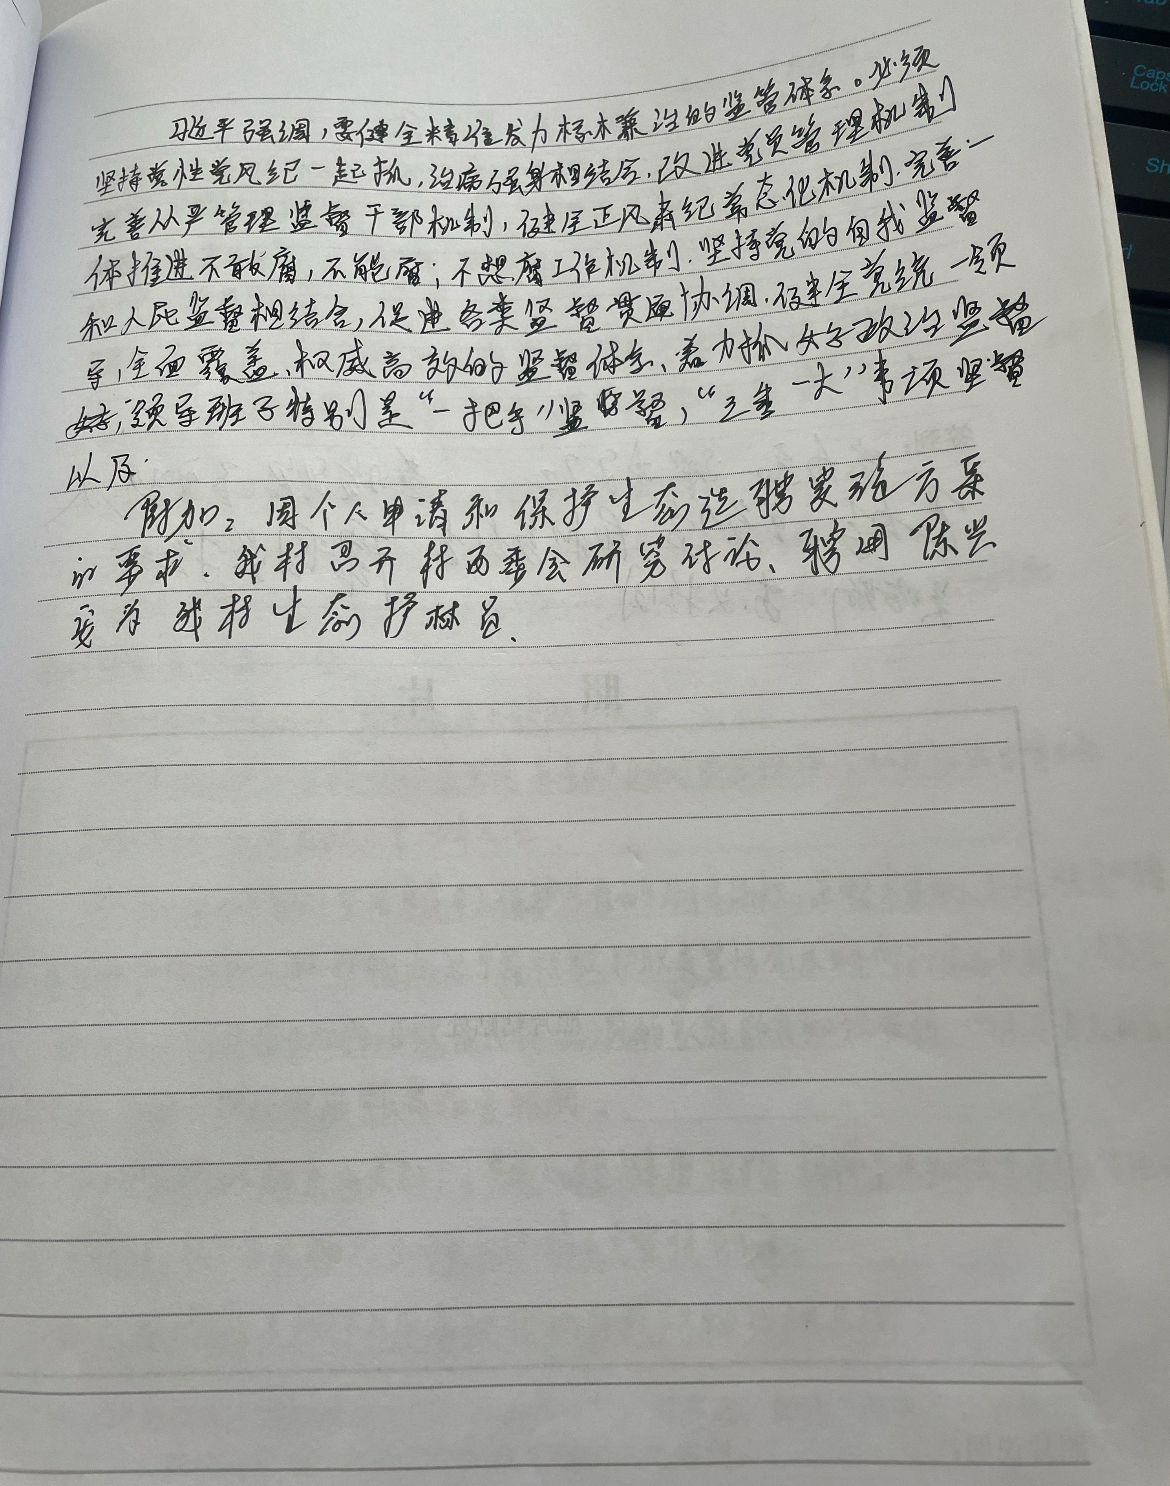 习近平强调，要健全精准发力标本兼治的监管体系。必须
坚持党性党风党纪一起抓，治病强身相结合，改进党员管理机制
完善从严管理监督干部机制，健全正风肃纪常态化机制.完善一
体推进不敢腐，不能腐；不想腐工作机制.坚持党的自我监督
和人民监督相结合，促进各类监督贯通协调.健全党统一领
导，全面覆盖、权威高效的监督体系、着力抓好政治监督
领导班子特别是“一把手”监督，“三重一大”事项监督
以及.
附加：因个人申请和保护生态选聘实施方案
的要求.我村召开村两委会研究讨论、聘用陈兴
为我村生态护林员.